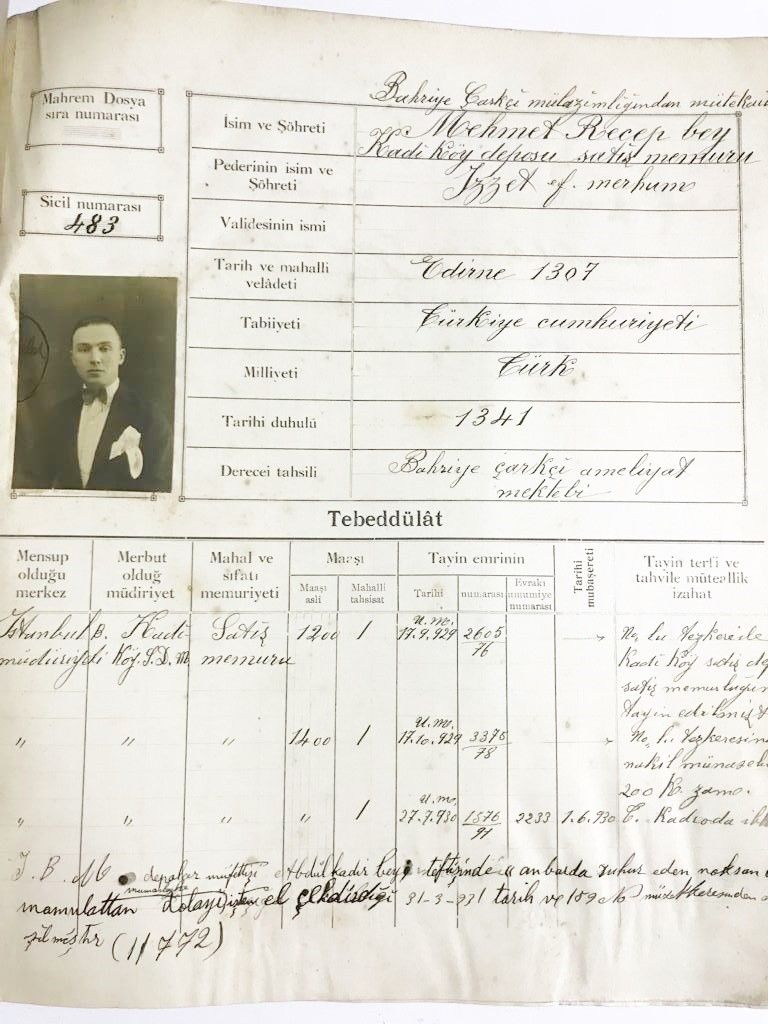 Mahrem Dosya
sıra numarası
Sicil numarası
483
Bahriye Çarkçi mülazimliğindan mütekai
İsim ve Şöhreti
Mehmet Recep bey
Kadi Köy deposu satiş memuru
Pederinin isim ve
Şöhreti
Izzet ef. merhum
Validesinin ismi
Tarih ve mahalli
velâdeti
Edirne 1307
Tabiiyeti
Türkiye cumhuriyeti
Milliyeti
Türk
Tarihi duhulü
1341
Derecei tahsili
Bahriye çarkçi ameliyat
mektebi
Tebeddülât
Mensup
olduğu
merkez
Merbut
olduğ
müdiriyet
Mahal ve
sıfatı
memuriyeti
Maaşı
Maaşı
asli
Mahalli
tahsisat
Tayin emrinin
Tarihi
numarası
Evrakı
umumiye
numarası
Tarihi
mubaşereti
Tayin terfi ve
tahvile müteallik
izahat
Istanbul B. Kadi Satiş 1200 1 U.M. 17.9.929 2605/76 No, lu tezkere ile
Köy. S. D. M. memuru Kadi Köy satiş de
satiş memurluğun
tayin edilmiş
" " " 1400 1 U.M. 17.10.929 3376/78 No, l. tezkeresin
nakil münaseb
200 K. zam.
" " " " 1 U.M. 27.7.930 1576/91 2233 1.6.930 T. Kadroda
depolar müfettişi Abdülkadir bey teftişinde anbarda zuhur eden noksan
mamulattan dolayi işten el çekdirdiği 31-3-931 tarih ve 109 No
(11772)